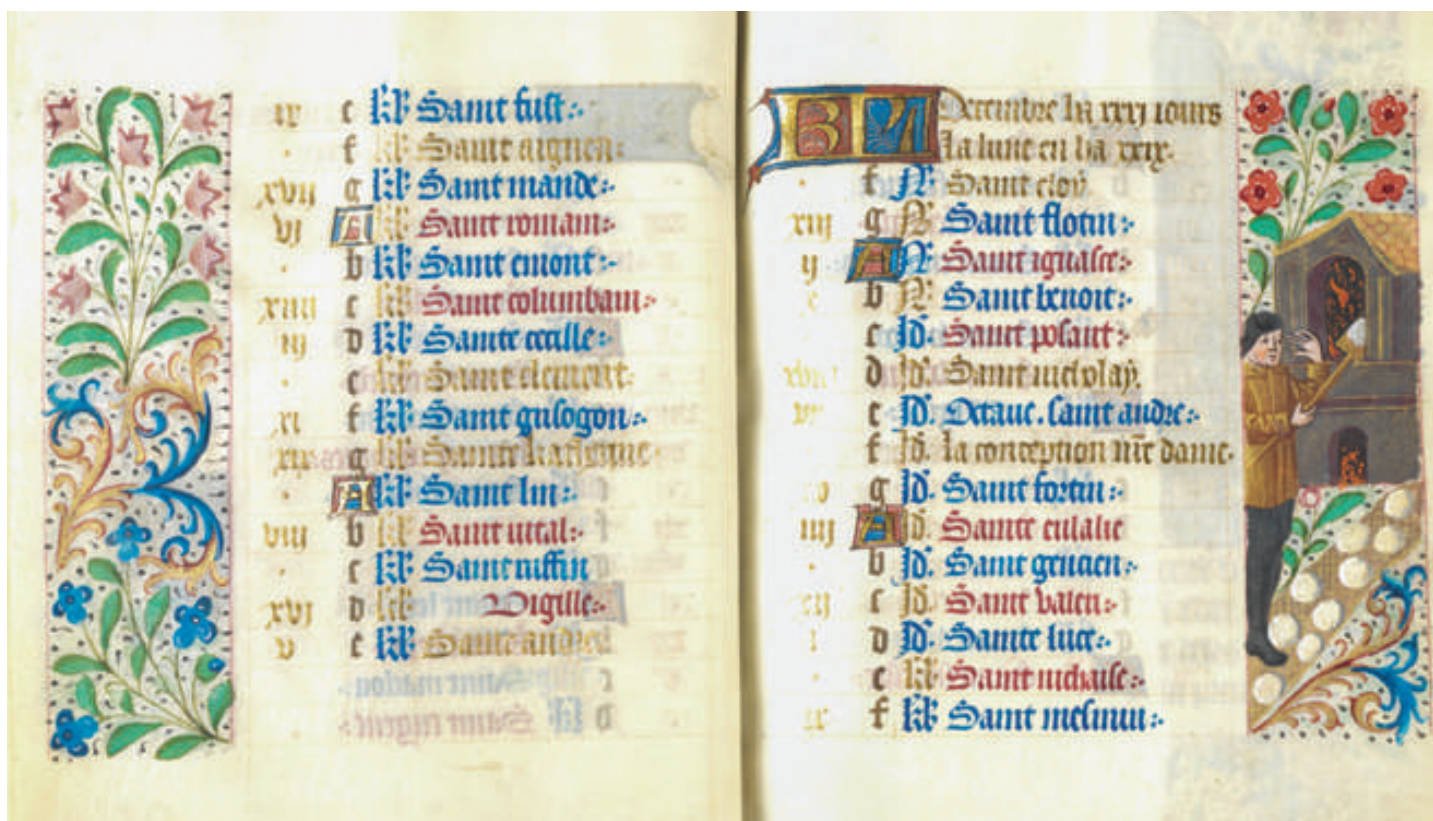 ix c kl Saint fust
f kl Saint aignen
xvij g kl Saint mande
vj A kl Saint romain
b kl Saint emont
xiiij c kl Saint columbain
iij d kl Sainte cecille
e kl Saint clement
xi f kl Saint grisogon
xix g kl Sainte katherine
A kl Saint lin
viij b kl Saint vital
c kl Saint ruffin
xvj d kl Vigille
v e kl Saint andre
EN Decembre ha xxxj iours
la lune en ha xxix.
f N. Saint eloy
xiij g N. Saint flotin
ij A N. Saint ignasce
b N. Saint benoit
c Id. Saint
d Id. Saint nicolay
e Id. Octave. saint andre
f Id. la conception nre dame
g Id. Saint fortin
iiij A Id. Sainte eulalie
b Id. Saint gencien
xij c Id. Saint valeri
d Id. Sainte luce
e kl Saint nichaise
ix f kl Saint mesmin